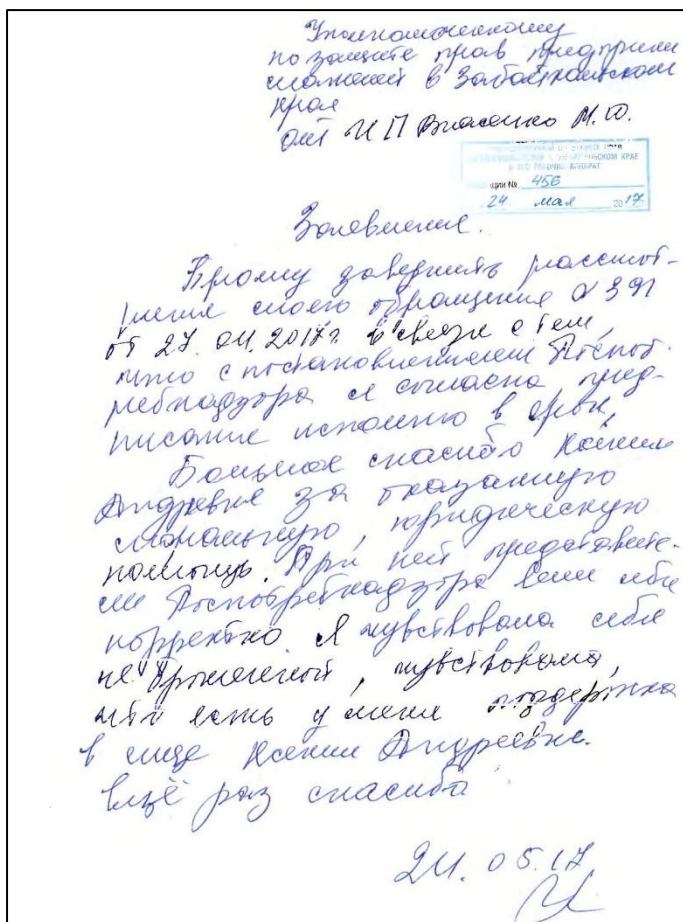 Уполномоченному
по защите прав предприни
мателей в Забайкальском
крае
от ИП Власенко М.Ю.
В ЗАБАЙКАЛЬСКОМ КРАЕ
И ЕГО РАБОЧИЙ АППАРАТ
ции № 456
24 мая 2017
Заявление.
Прошу завершить рассмот-
рение моего обращения № 391
от 27.04.2017г. в связи с тем,
что с постановлением Роспот-
ребнадзора я согласна пред-
писание исполню в срок.
Большое спасибо Ксении
Андревне за оказанную
моральную, юридическую
помощь. При ней представите-
ли Роспотребнадзора вели себя
корректно. Я чувствовала себя
не брошенной, чувствовала,
что есть у меня поддержка
в лице Ксении Андреевне.
Ещё раз спасибо
24.05.17